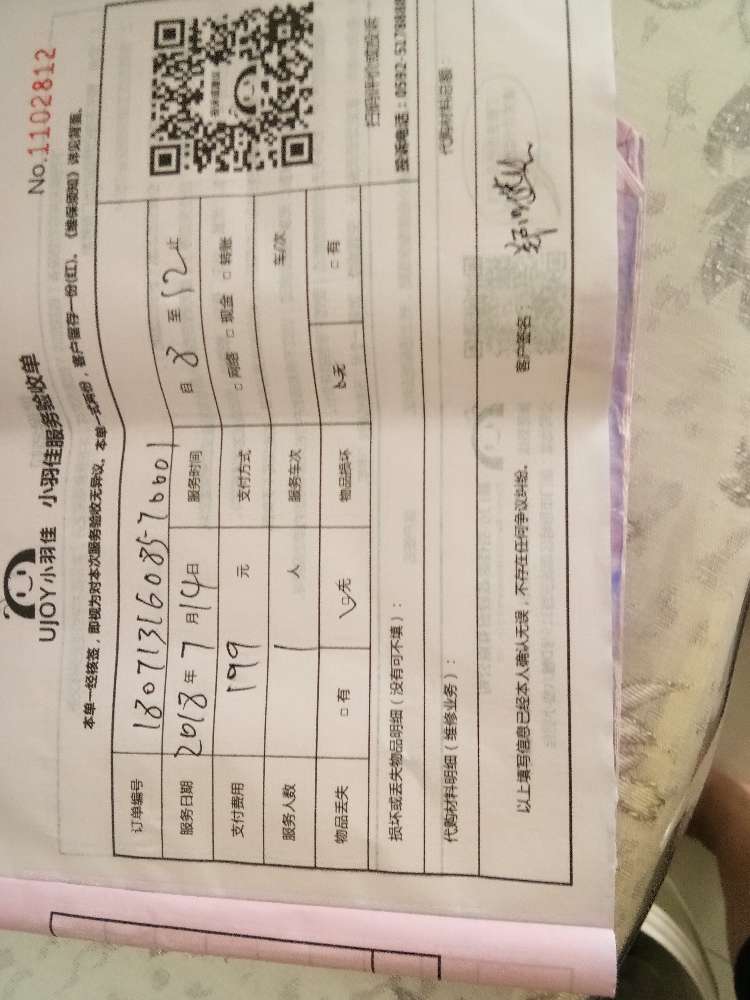 No.1102812
UJOY小羽佳 小羽佳服务验收单
本单一经核签，即视为对本次服务验收无异议。本单一式两份，客户留存一份(红)。《维保须知》详见背面。
订单编号 1807131608570001
服务日期 2018年7月14日 服务时间 自 8 至 12 止
支付费用 199 元 支付方式 □网络 □现金 □转账
服务人数 1 人 服务车次 车/次
物品丢失 □有 ☑无 物品损坏 ☑无 □有
损坏或丢失物品明细（没有可不填）：
扫码评价或投诉
投诉电话：0592-5178888
代购材料明细（维修业务）：
代购材料总额：
以上填写信息已经本人确认无误，不存在任何争议纠纷。 客户签名：